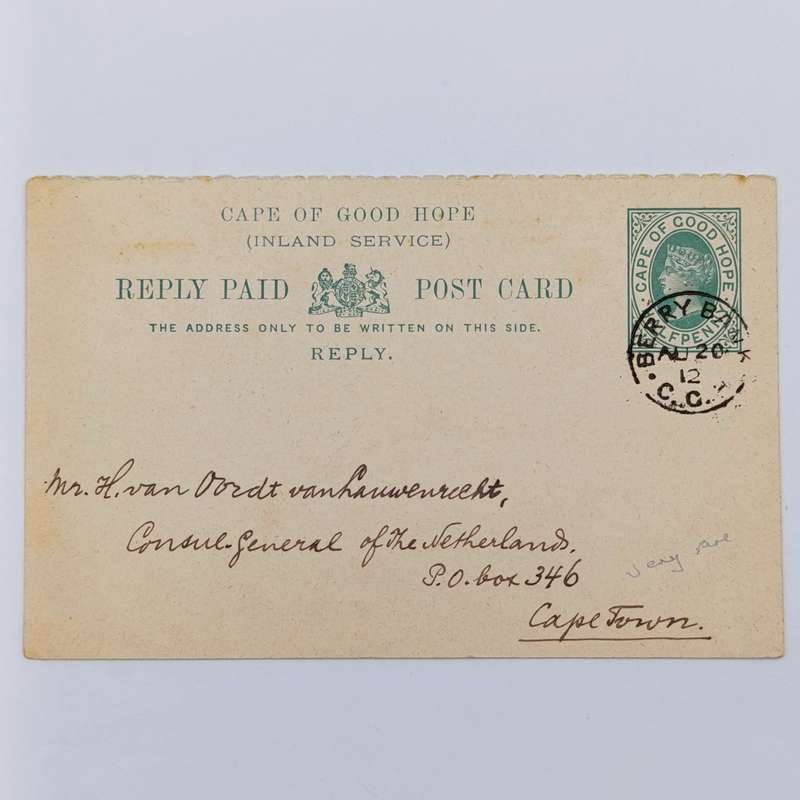 CAPE OF GOOD HOPE
(INLAND SERVICE)
REPLY PAID POST CARD
THE ADDRESS ONLY TO BE WRITTEN ON THIS SIDE.
REPLY.
CAPE OF GOOD HOPE
HALFPENNY
BERRY BANK
AU 20
12
C.G.H
Mr. H. van Oordt van Lauwenrecht,
Consul-General of the Netherlands.
P.O. box 346
Cape Town.
very rare